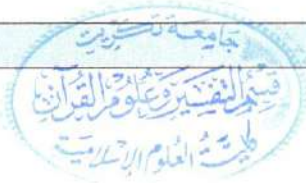 جامعة تكريت
قسم التفسير وعلوم القرآن
كلية العلوم الإسلامية